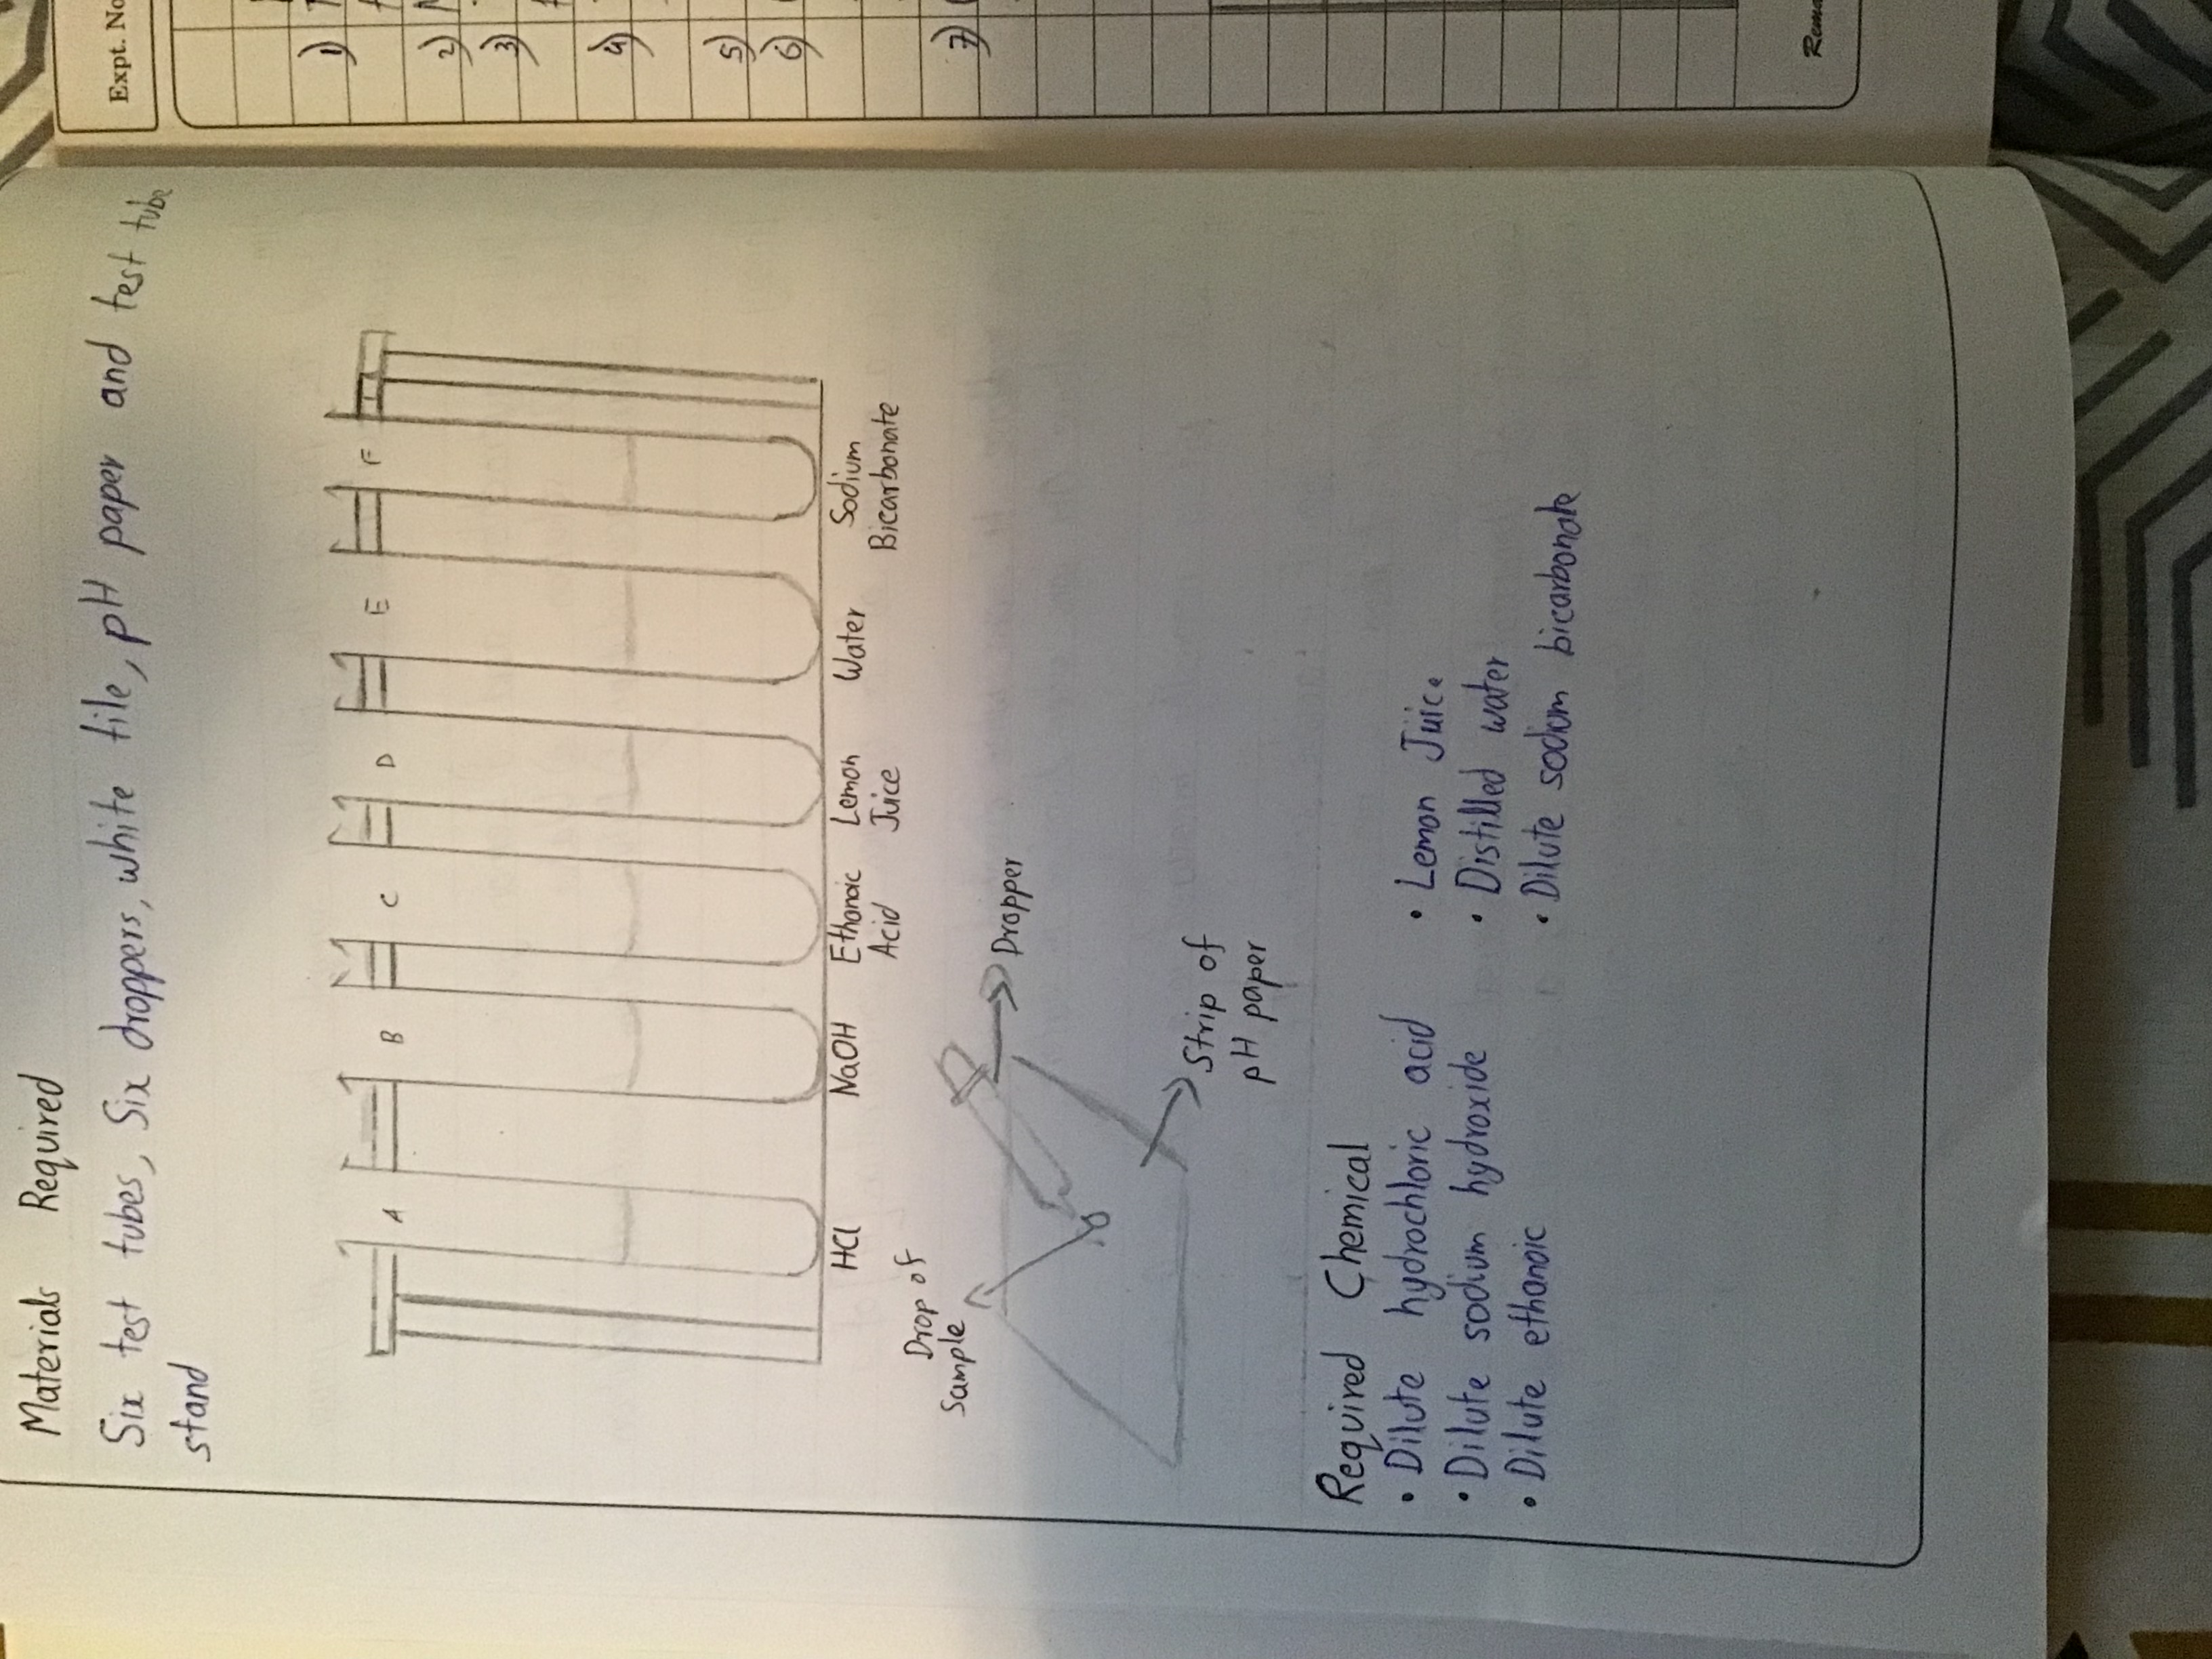 Materials Required
Six test tubes, Six droppers, white tile, pH paper and test tube
stand
A B C D E F
HCl NaOH Ethanoic Lemon Water Sodium
Acid Juice Bicarbonate
Drop of
Sample
Dropper
Strip of
pH paper
Required Chemical
• Dilute hydrochloric acid
• Dilute sodium hydroxide
• Dilute ethanoic
• Lemon Juice
• Distilled water
• Dilute sodium bicarbonate
Expt. No
1)
2)
3)
4)
5)
6)
7)